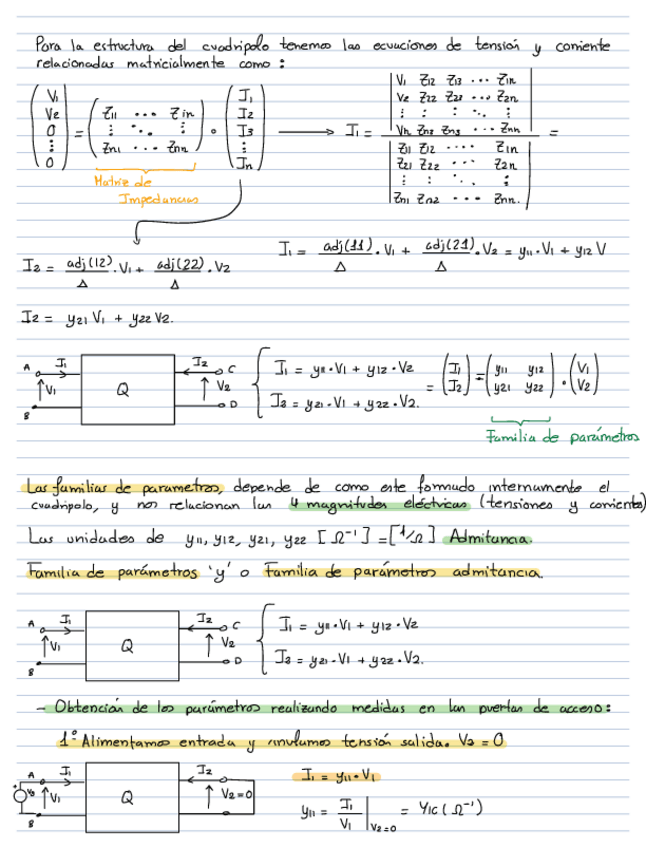 Para la estructura del cuadripolo tenemos las ecuaciones de tensión y corriente
relacionadas matricialmente como:
(V1 V2 0 ⋮ 0) = (Z11 ... Z1n ⋮ ⋱ ⋮ Zn1 ... Znn) · (I1 I2 I3 ⋮ In) ⟶ I1 = |V1 Z12 Z13 ... Z1n V2 Z22 Z23 ... Z2n ⋮ ⋮ ⋮ ⋱ ⋮ Vn Zn2 Zn3 ... Znn| / |Z11 Z12 .... Z1n Z21 Z22 ... Z2n ⋮ ⋮ ⋱ ⋮ Zn1 Zn2 ... Znn.| =
Matriz de
Impedancias
I1 = adj(11)/Δ . V1 + adj(21)/Δ . V2 = y11 . V1 + y12 V
I2 = adj(12)/Δ . V1 + adj(22)/Δ . V2
I2 = y21 V1 + y22 V2.
A I1 V1 B Q I2 C V2 D
I1 = y11 . V1 + y12 . V2
I2 = y21 . V1 + y22 . V2.
= (I1 I2) = (y11 y12 y21 y22) . (V1 V2)
Familia de parámetros
Las familias de parametros, depende de como este formado internamente el
cuadripolo, y nos relacionan las 4 magnitudes eléctricas (tensiones y corriente)
Las unidades de y11, y12, y21, y22 [Ω⁻¹] = [1/Ω] Admitancia.
Familia de parámetros 'y' o Familia de parámetros admitancia.
A I1 V1 B Q I2 C V2 D
I1 = y11 . V1 + y12 . V2
I2 = y21 . V1 + y22 . V2.
- Obtención de los parámetros realizando medidas en las puertas de acceso:
1º Alimentamos entrada y anulamos tensión salida. V2 = 0
A I1 V1 B Q I2 V2=0
I1 = y11 . V1
y11 = I1/V1 |V2=0 = Y1c (Ω⁻¹)